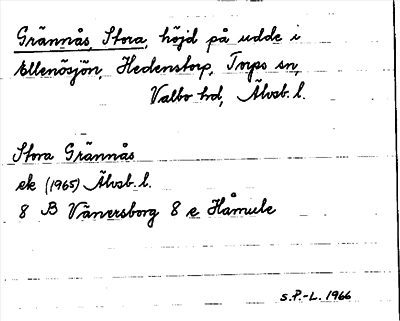 Grännås, Stora, höjd på udde i
Ellenösjön, Hedenstorp, Torps sn,
Valbo hd, Älvsb. l.
Stora Grännås
ek (1965) Älvsb. l.
8 B Vänersborg 8 e Håmule
S.P.-L. 1966